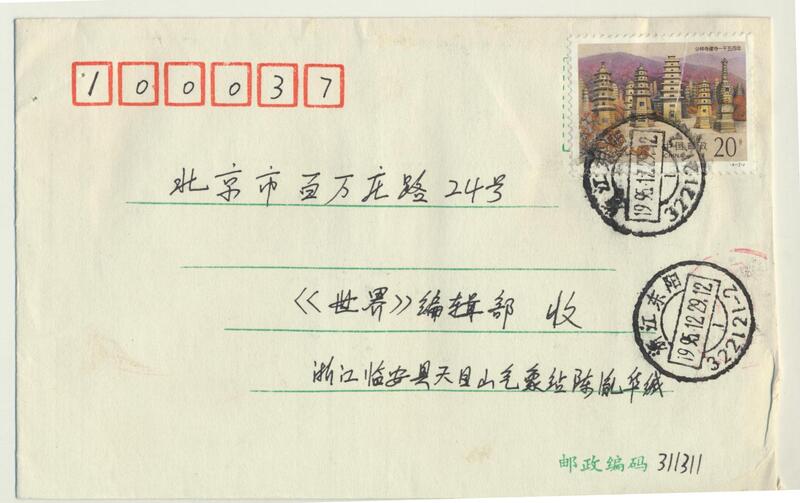 100037
少林寺建寺一千五百年
20分
中国邮政
CHINA
北京市百万庄路24号
《世界》编辑部 收
浙江临安县天目山气象站陈胤华缄
邮政编码 311311
浙江东阳
1995.12.29.12
322121-2
1995.12.29.12
322121